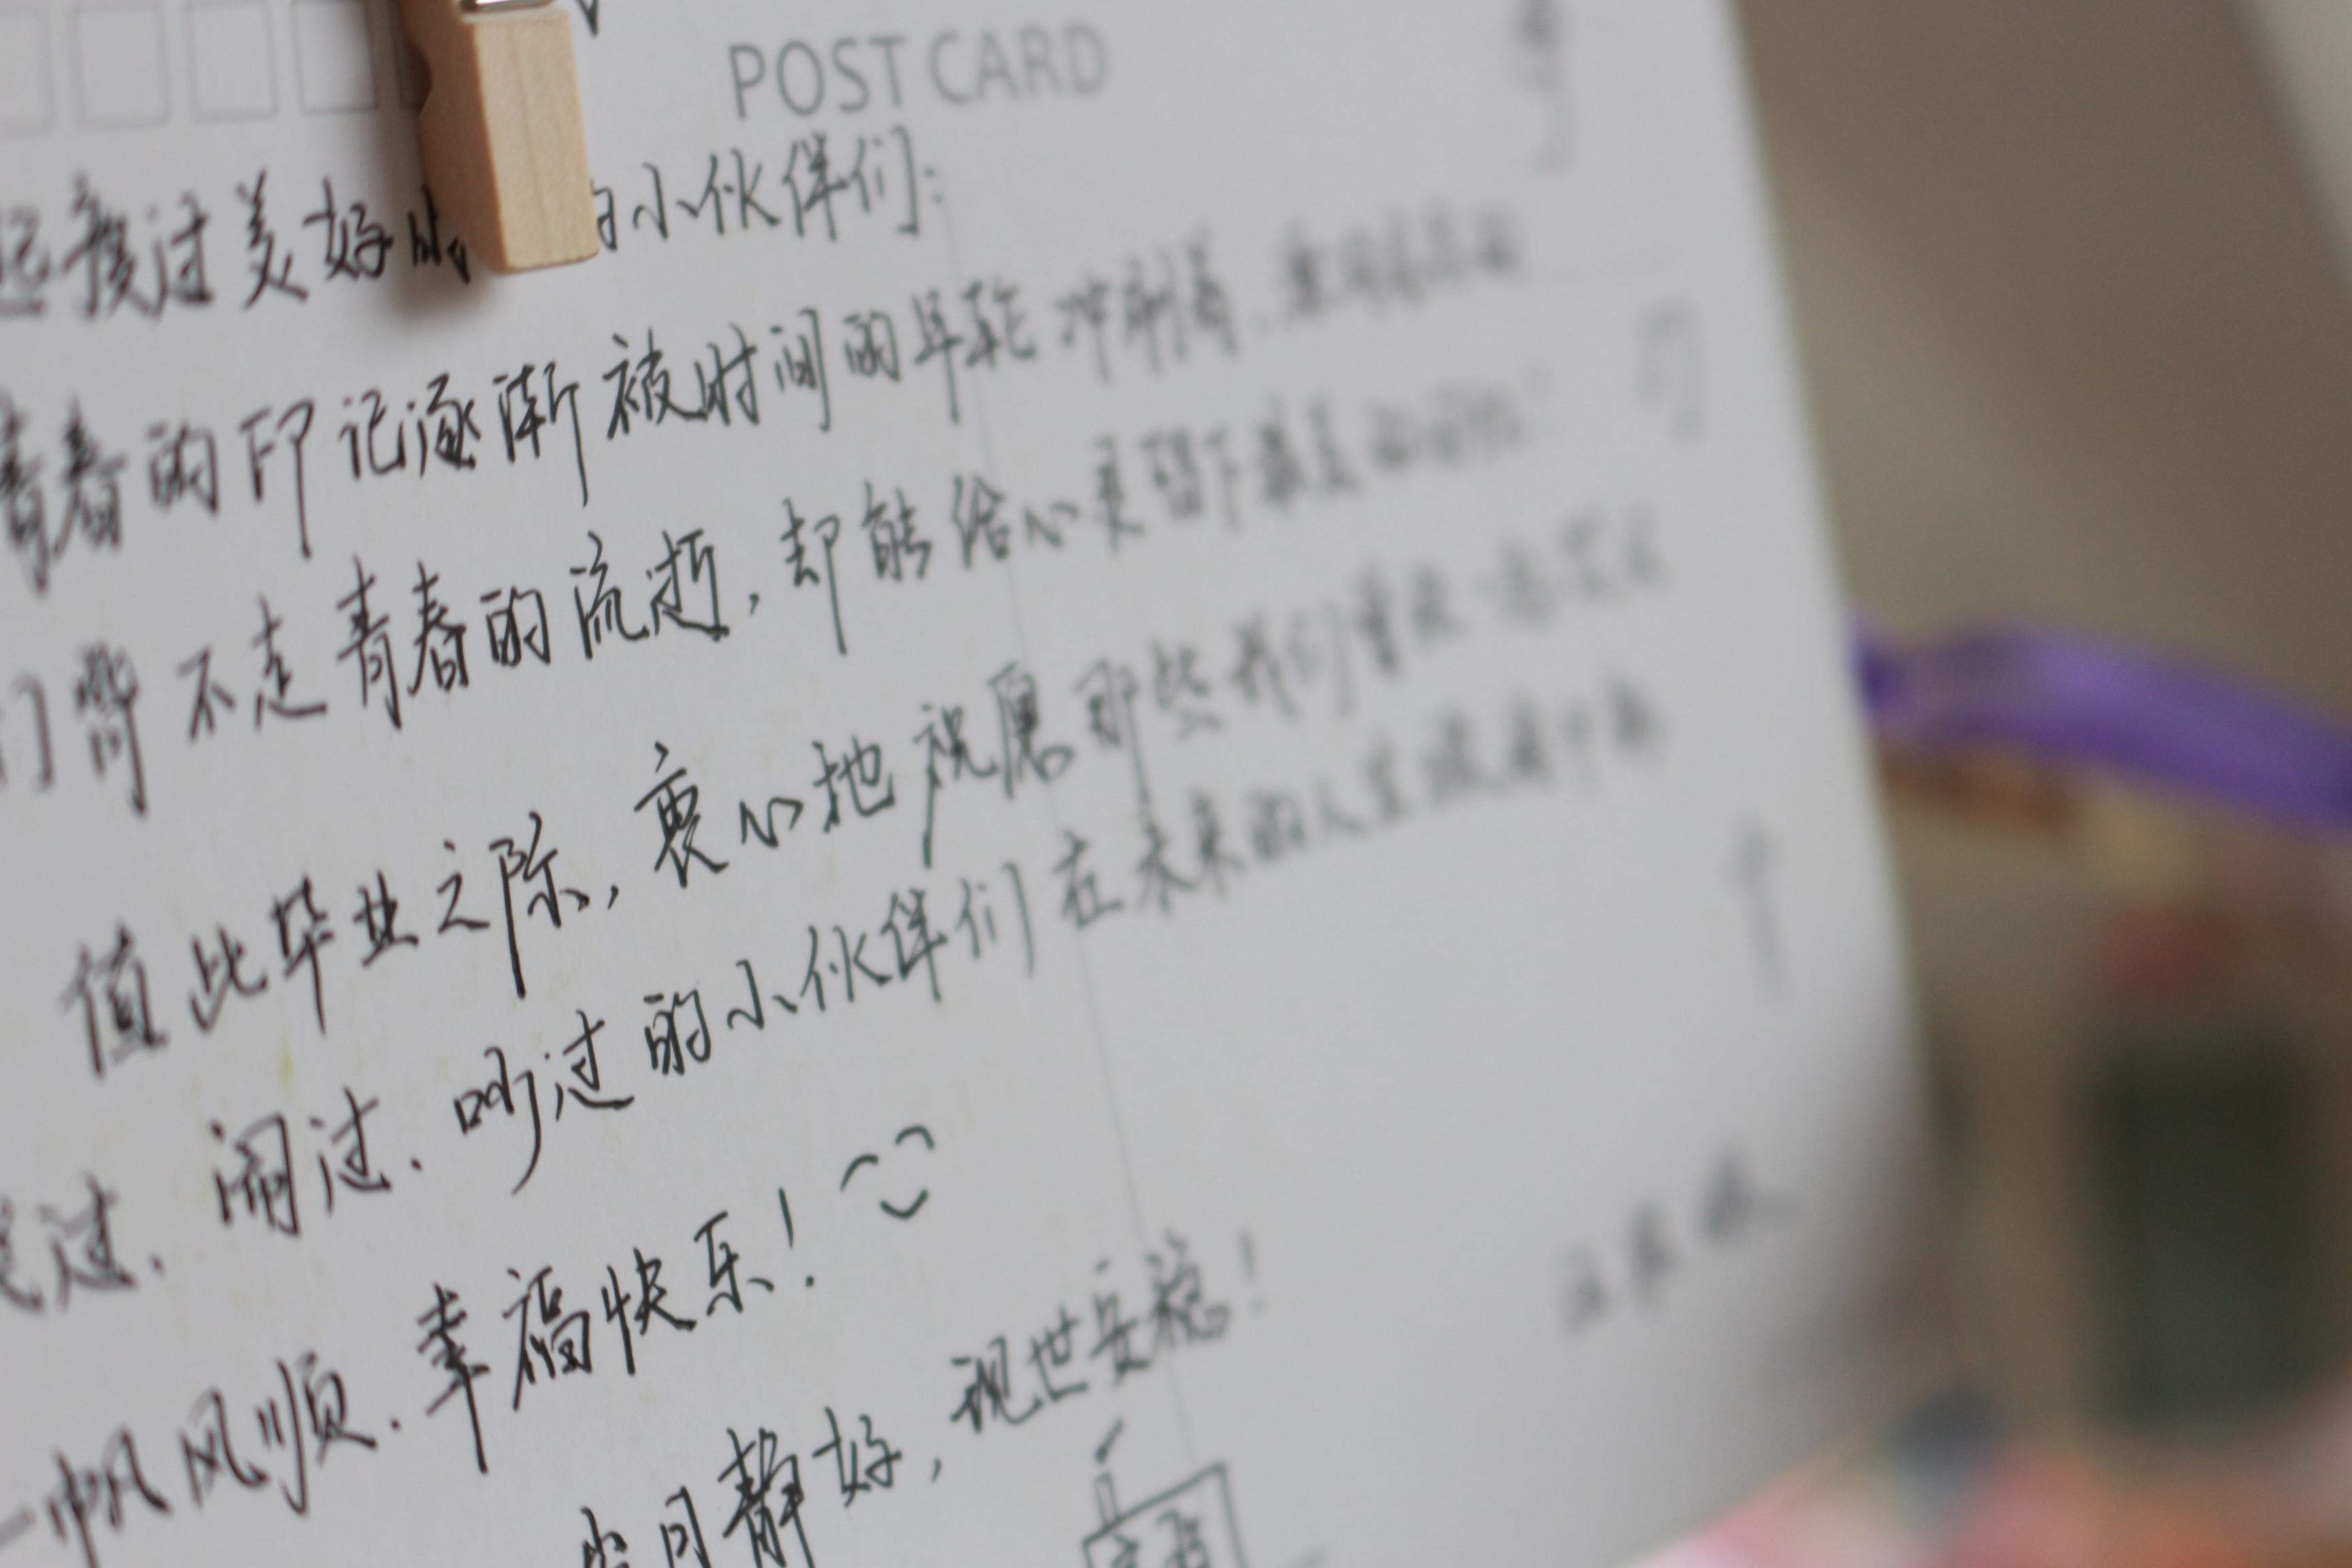 POST CARD
起度过美好的小伙伴们:
青春的印记逐渐被时间的年轮冲刺着、
们带不走青春的流逝,却能给心灵留下最美的回忆!
值此毕业之际,衷心地祝愿那些我们曾在一起
笑过、闹过、吵过的小伙伴们在未来的人生
一帆风顺、幸福快乐!
岁月静好,现世安稳!